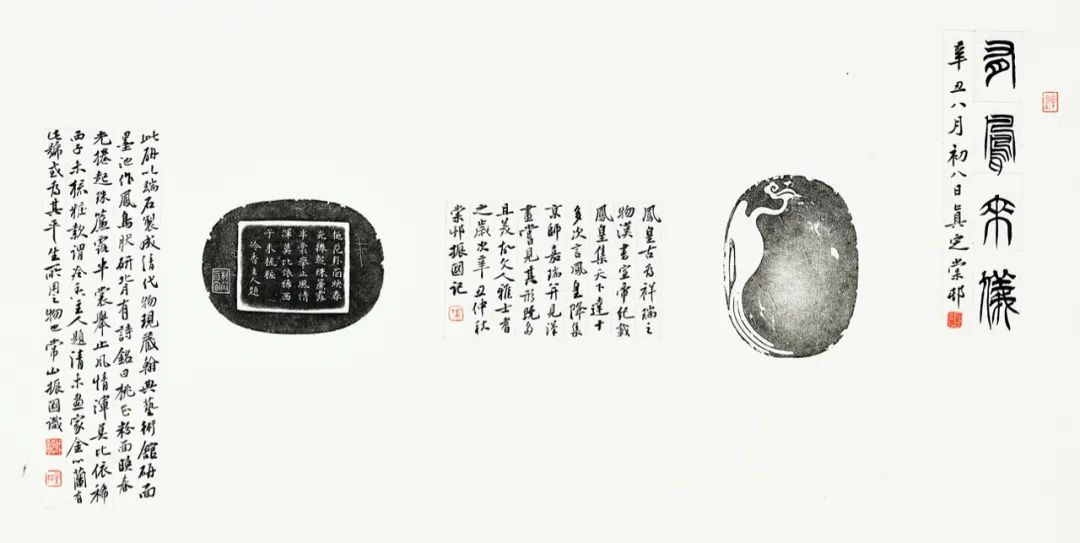 有鳳来儀
辛丑八月初八日真定棠邨
鳳皇古为祥瑞之
物漢書宣帝纪載
鳳皇集天下達十
多次言鳳皇降集
京師嘉瑞并见漢
畫嘗見其形
且人雅士者
之歲次辛丑仲秋
棠邨振國记
桃花粉面映春
光捲起珠簾露
半裳舉止風情
渾莫比依稀西
子未梳粧
冷香主人題
此研以端石製成清代物現藏翰典藝術館研面
墨池作鳳鳥狀研背有詩銘曰桃花粉面暎春
光捲起珠簾露半裳舉止风情渾莫比依稀
西子未梳粧款谓冷香主人題清末画家金心蘭有
此號或为其平生所用之物也常山振國識